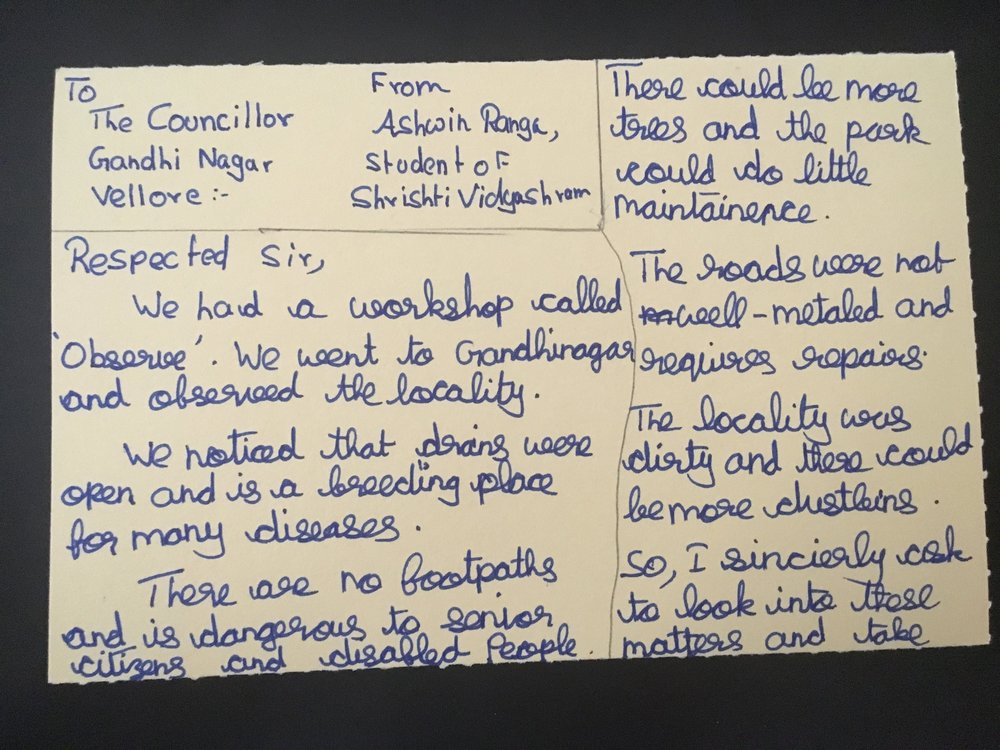 To
The Councillor
Gandhi Nagar
Vellore :-
From
Ashwin Ranga,
Student of
Shrishti Vidyashram
Respected Sir,
We had a workshop called
'Observe'. We went to Gandhinagar
and observed the locality.
We noticed that drains were
open and is a breeding place
for many diseases.
There are no footpaths
and is dangerous to senior
citizens and disabled People.
There could be more
trees and the park
could do little
maintainence.
The roads were not
well-metaled and
requires repairs.
The locality was
dirty and there could
be more dustbins.
So, I sincierly ask
to look into these
matters and take